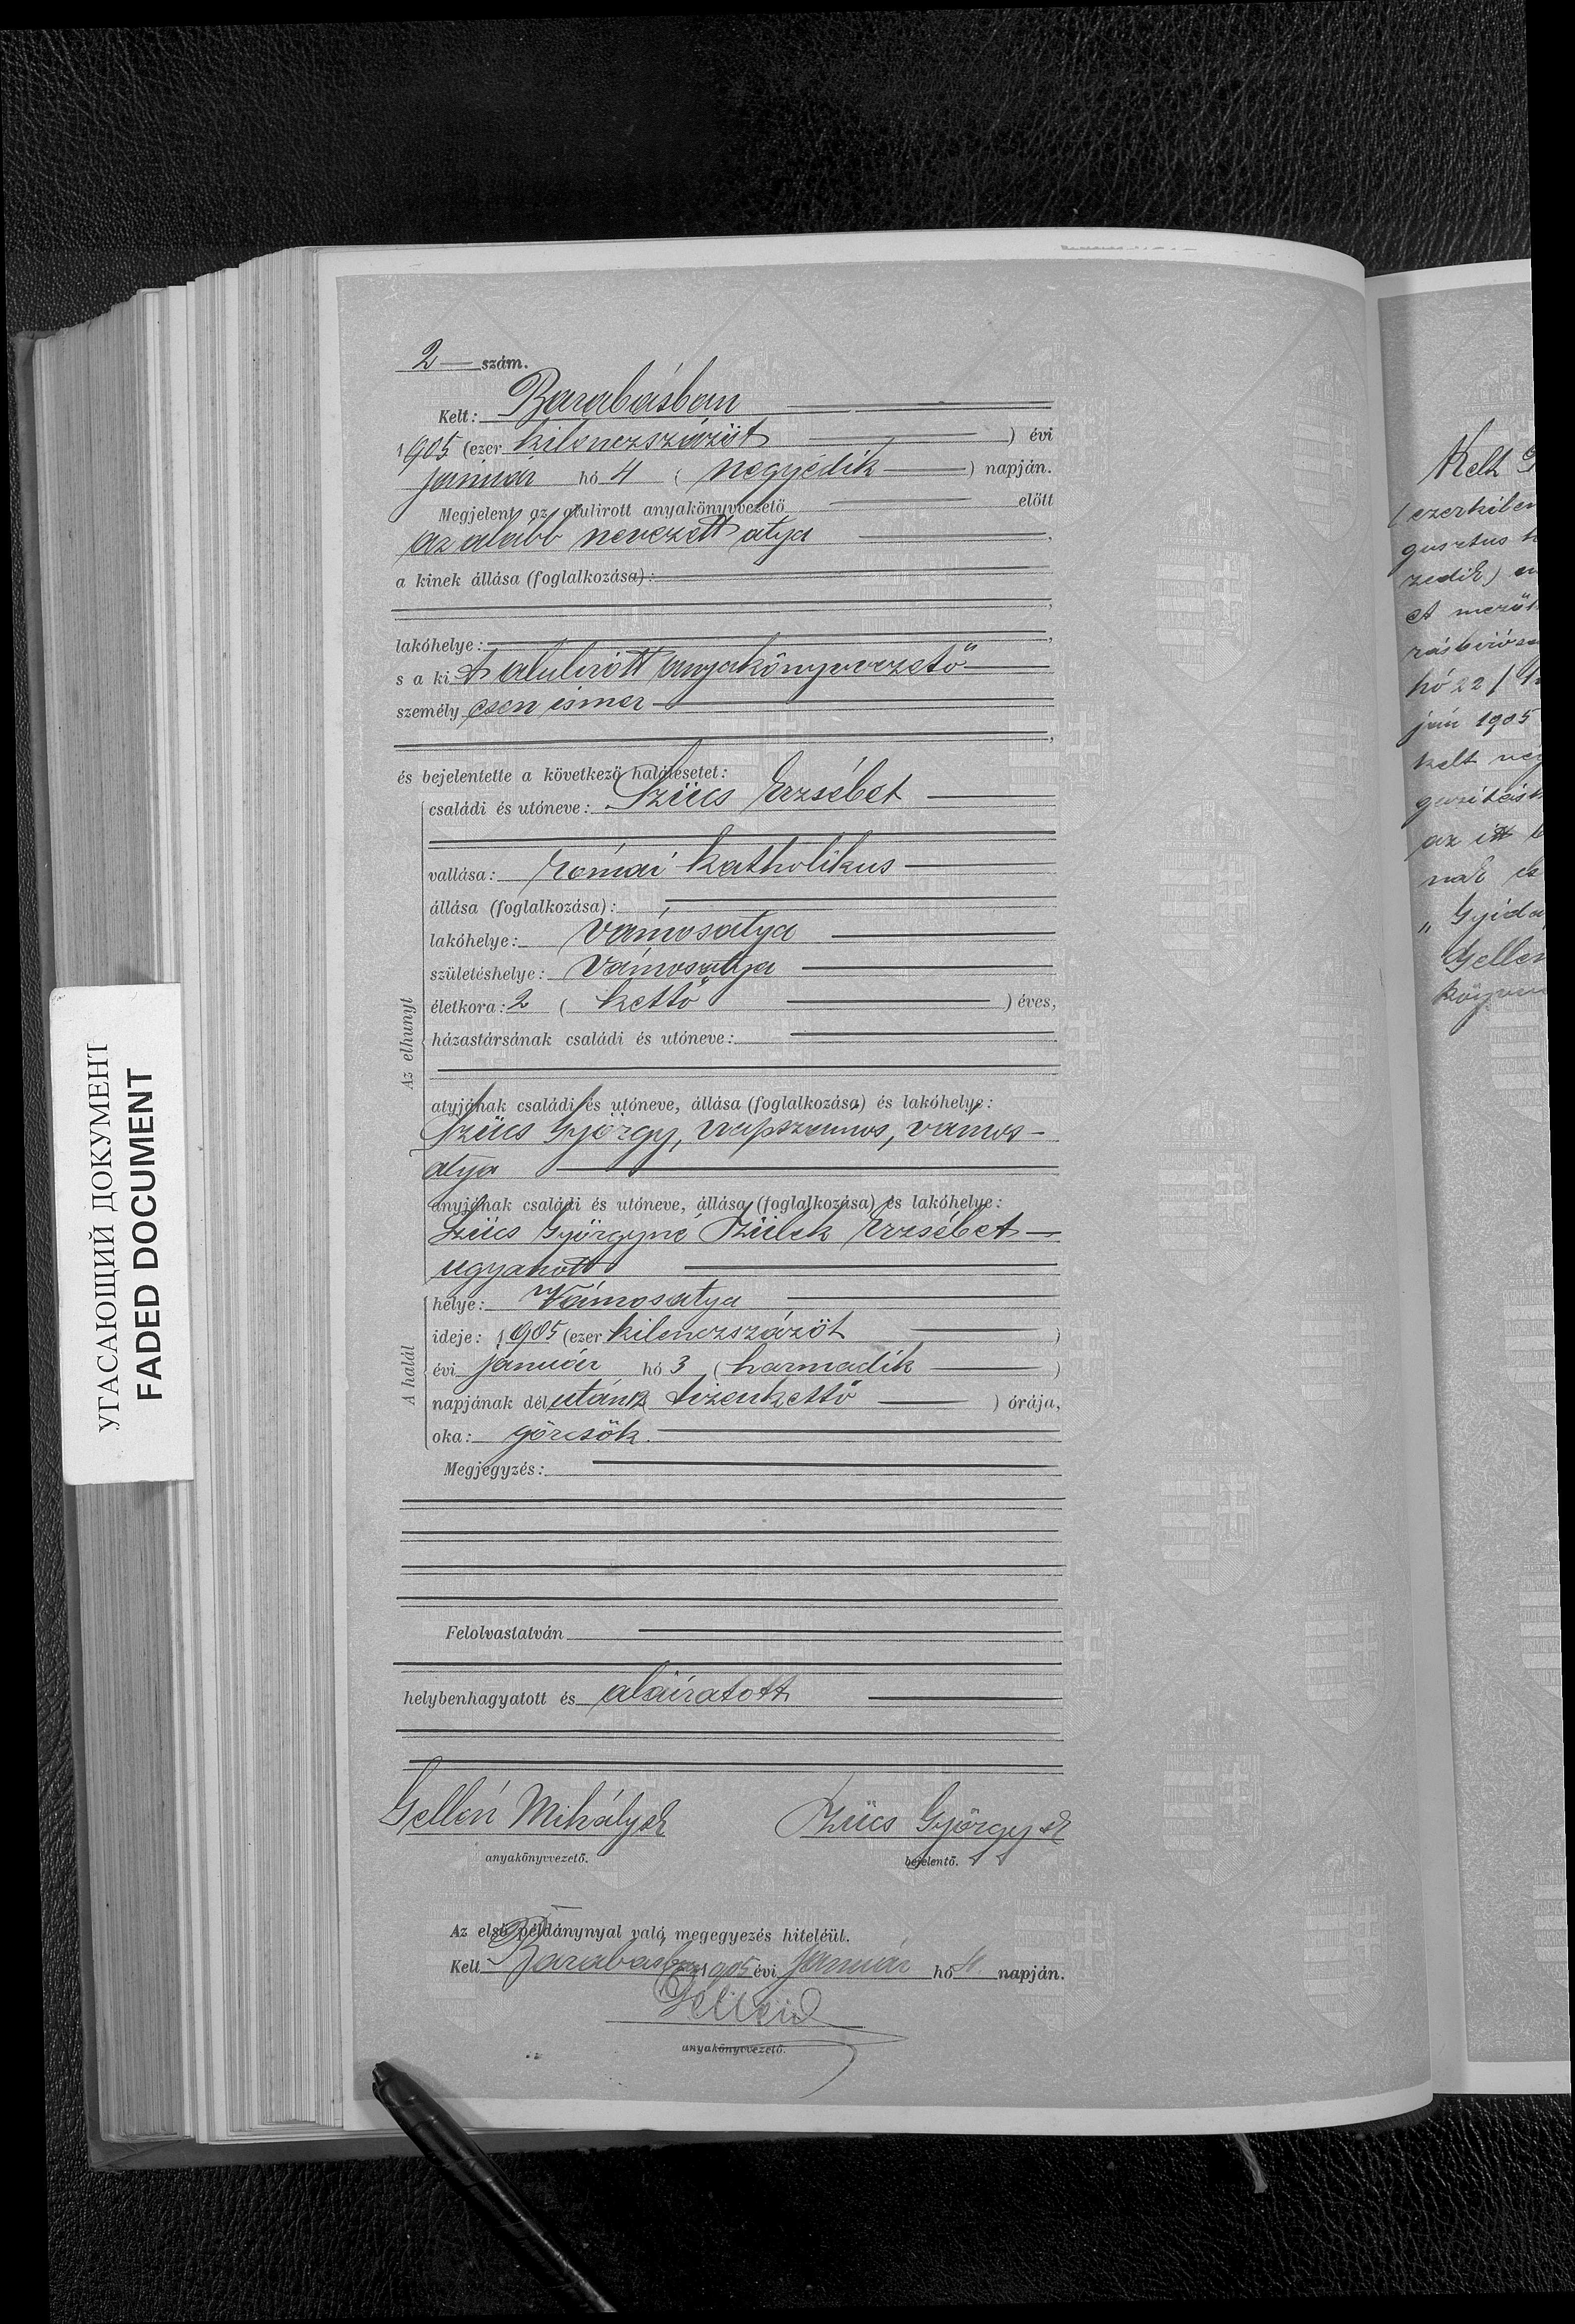 2 szám.
Kelt: Barabásban
1905 (ezer kilenczszázöt ) évi
január hó 4 ( negyedik ) napján.
Megjelent az alulirott anyakönyvvezető előtt
az alább nevezett atya ,
a kinek állása (foglalkozása):
,
lakóhelye: ,
s a kit alulirott anyakönyvvezető
személyesen ismer
,
és bejelentette a következő halálesetet:
családi és utóneve: Szücs Erzsébet
vallása: római katholikus
állása (foglalkozása):
lakóhelye: Vámosatya
születéshelye: Vámosatya
életkora: 2 ( kettő ) éves,
házastársának családi és utóneve:
Az elhunyt
atyjának családi és utóneve, állása (foglalkozása) és lakóhelye:
Szücs György, napszámos, vámos-
atya
anyjának családi és utóneve, állása (foglalkozása) és lakóhelye:
Szücs Györgyné Szülek Erzsébet
ugyanott
helye: Vámosatya
ideje: 1905 (ezer kilenczszázöt )
évi január hó 3 ( harmadik )
napjának délután 12 ( tizenkettő ) órája,
oka: görcsök.
A halál
Megjegyzés:
Felolvastatván
helybenhagyatott és aláiratott
Gellén Mihály sk Szücs György sk
anyakönyvvezető. bejelentő.
Az első példánynyal való megegyezés hiteléül.
Kelt Barabásban 1905 évi Január hó 4. napján.
Gellén
anyakönyvvezető.
УГАСАЮЩИЙ ДОКУМЕНТ
FADED DOCUMENT
Kelt
(ezerkilen
gusztus
zedik)
hó 22
1905
kelt
az itt
"Gyida
Gellén